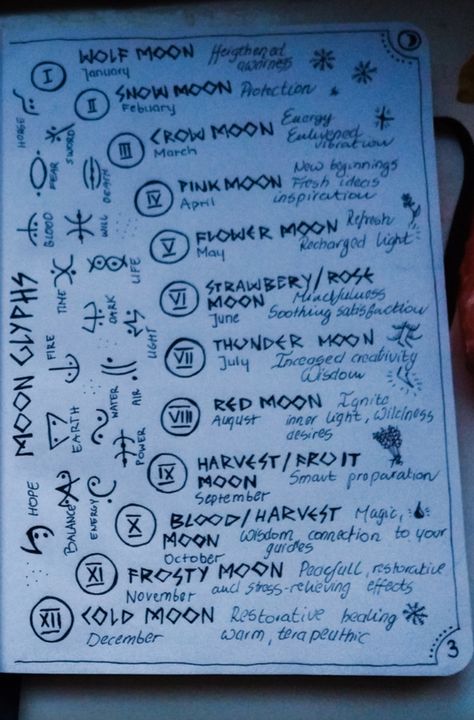 I WOLF MOON Heigthened
January awarness
II SNOW MOON Protection
Febuary
III CROW MOON Energy
March Enlivened
vibration
IV PINK MOON New beginnings
April Fresh ideas
inspiration
V FLOWER MOON Refresh
May Recharged light
VI STRAWBERY/ROSE
MOON Mindfulness
June Soothing satisfaction
VII THUNDER MOON
July Inceased creativity
Wisdow
VIII RED MOON Ignite
August inner light, Wildness
desires
IX HARVEST/FROIT
MOON Smart preparation
September
X BLOOD/HARVEST Magic,
MOON Wisdom connection to your
October guides
XI FROSTY MOON Peacfull, restorative
November and stress-relieving effects
XII COLD MOON Restorative healing
December warm, terapeuthic
3
MOON GLYPHS
HORSE
SWORD
FEAR
DEATH
BLOOD
WILL
TIME
LIFE
DARK
FIRE
LIGHT
EARTH
WATER
AIR
POWER
HOPE
BALANCE
ENERGY